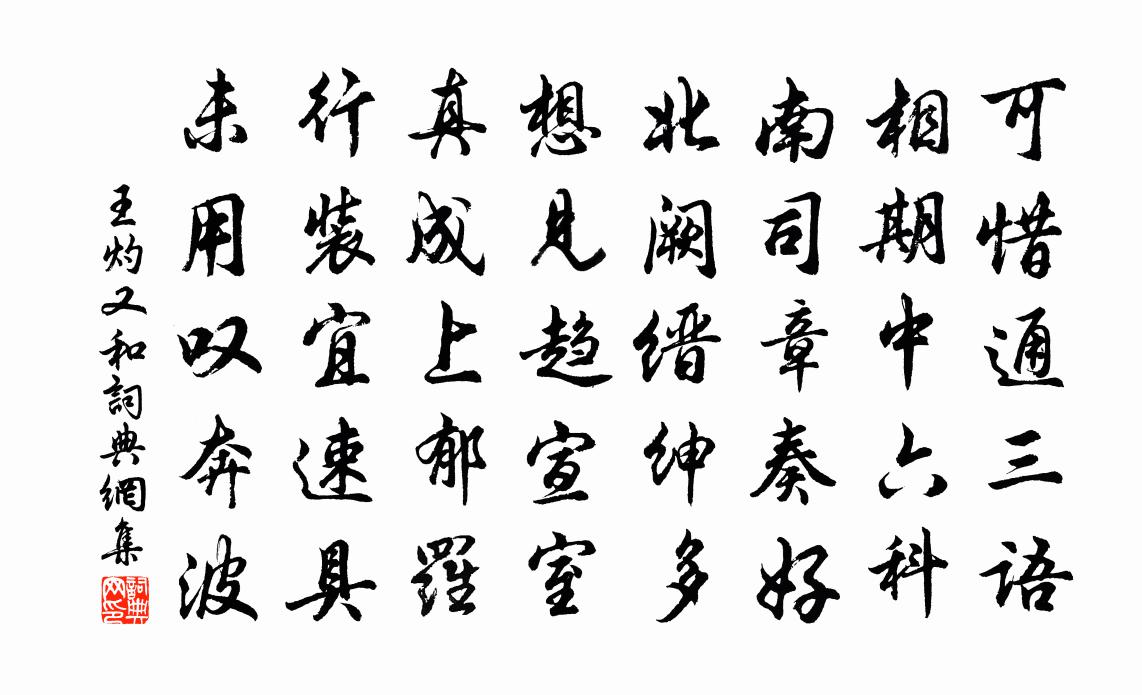 可惜通三语
相期中六科
南司章奏好
北阙缙绅多
想见趋宣室
真成上郁罗
行装宜速具
未用叹奔波
王灼又和詞典網集
詞典